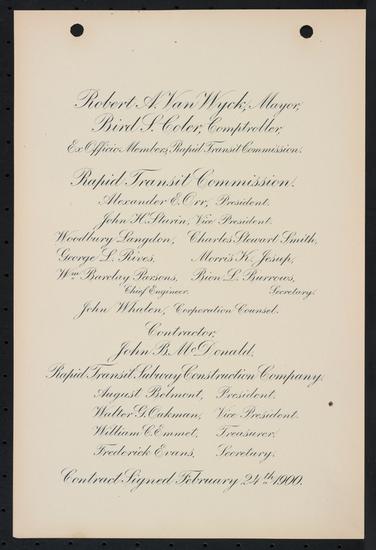 Robert A. Van Wyck, Mayor,
Bird S. Coler, Comptroller,
Ex Officio Members, Rapid Transit Commission.
Rapid Transit Commission.
Alexander E. Orr, President.
John H. Starin, Vice President.
Woodbury Langdon, Charles Stewart Smith,
George L. Rives, Morris K. Jesup,
Wm Barclay Parsons, Bion L. Burrows,
Chief Engineer. Secretary.
John Whalen, Corporation Counsel.
Contractor,
John B. McDonald.
Rapid Transit Subway Construction Company,
August Belmont, President.
Walter G. Oakman, Vice President.
William C. Emmet, Treasurer.
Frederick Evans, Secretary.
Contract Signed February 24th 1900.